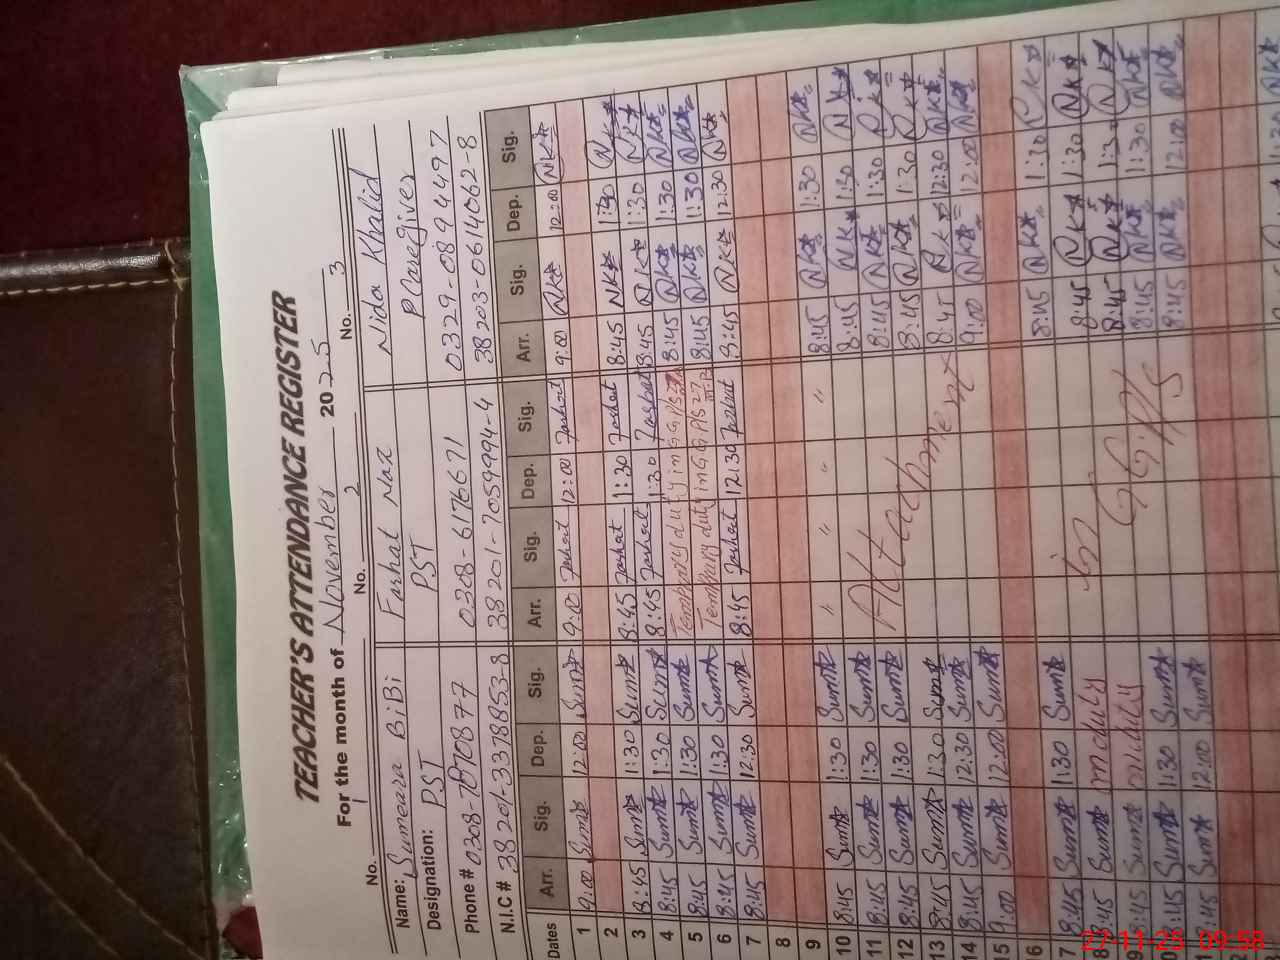 TEACHER'S ATTENDANCE REGISTER
For the month of November 2025
No. 1 No. 2 No. 3
Name: Sumeara BiBi Farhat Naz Nida Khalid
Designation: PST PST
Phone # 0308-0328-6176671 0329-0894497
N.I.C # 38201-3378853-8 38201-7059994-4 38203-0614062-8
Dates Arr. Sig. Dep. Sig. Arr. Sig. Dep. Sig. Arr. Sig. Dep. Sig.
1 9:00 Sum 12:00 Sum 9:00 Farhat 12:00 Farhat 9:00 NK 12:00 NK
2
3 8:45 Sum 1:30 Sum 8:45 Farhat 1:30 Farhat 8:45 NK 1:30 NK
4 8:45 Sum 1:30 Sum 8:45 Farhat 1:30 Farhat 8:45 NK 1:30 NK
5 8:45 Sum 1:30 Sum duty in GGPS 27 8:45 NK 1:30 NK
6 8:45 Sum 1:30 Sum duty in GGPS 27 8:45 NK 1:30 NK
7 8:45 Sum 12:30 Sum 8:45 Farhat 12:30 Farhat 8:45 NK 12:30 NK
8
9
10 8:45 Sum 1:30 Sum " " " " 8:45 NK 1:30 NK
11 8:45 Sum 1:30 Sum 8:45 NK 1:30 NK
12 8:45 Sum 1:30 Sum Attachment 8:45 NK 1:30 NK
13 8:45 Sum 1:30 Sum 8:45 NK 1:30 NK
14 8:45 Sum 12:30 Sum 8:45 NK 12:30 NK
15 9:00 Sum 12:00 Sum 9:00 NK 12:00 NK
16
17 8:45 Sum 1:30 Sum 8:45 NK 1:30 NK
18 8:45 Sum m duty in 8:45 NK 1:30 NK
9 8:45 Sum duty GGPS 8:45 NK 1:30 NK
0 8:45 Sum 1:30 Sum 8:45 NK 1:30 NK
1 8:45 Sum 12:00 Sum 8:45 NK 12:00 NK
2
27-11-25 09:58